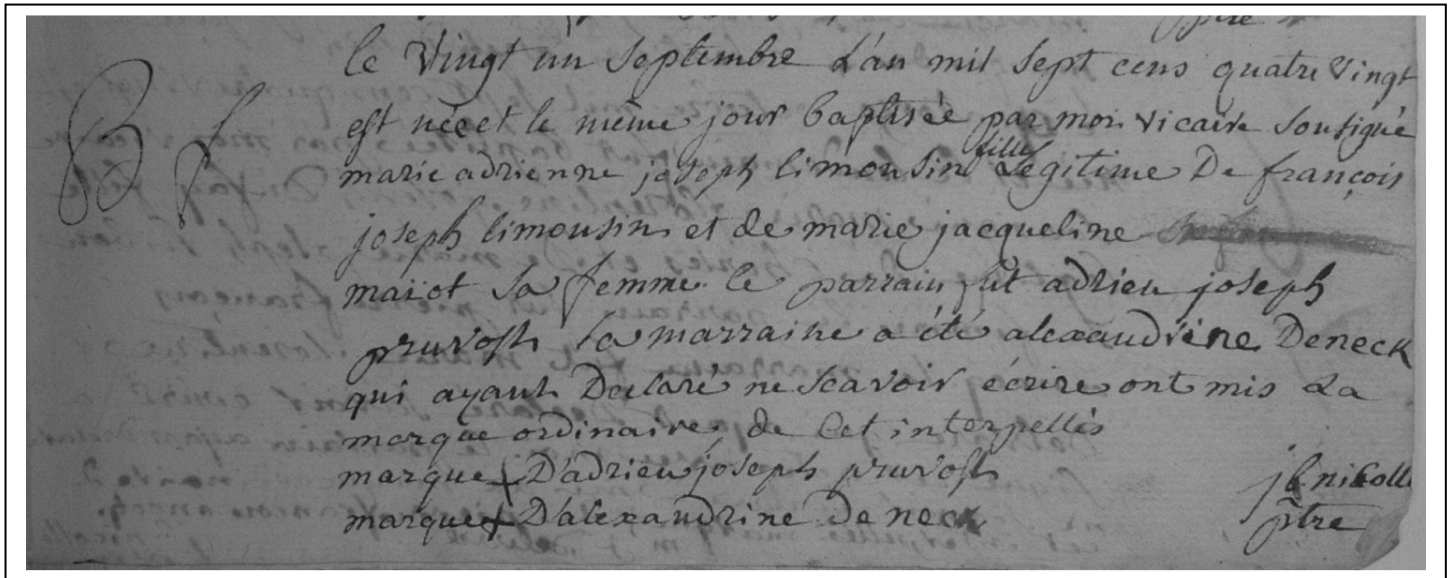 ptre
le Vingt un Septembre L'an mil Sept cens quatre Vingt
est née et le même jour baptisée par moi vicaire Soutigné
marie adrienne joseph limousin fille Legitime De françois
joseph limousin et de marie jacqueline
maïot Sa femme le parrain fut adrien joseph
pruvost La marraine a été alexandrine Deneck
qui ayant Declaré ne scavoir écrire ont mis La
marque ordinaire de Cet interpellés
marque + D'adrien joseph pruvost
jb nicolle
marque + D'alexandrine deneck
ptre
B f